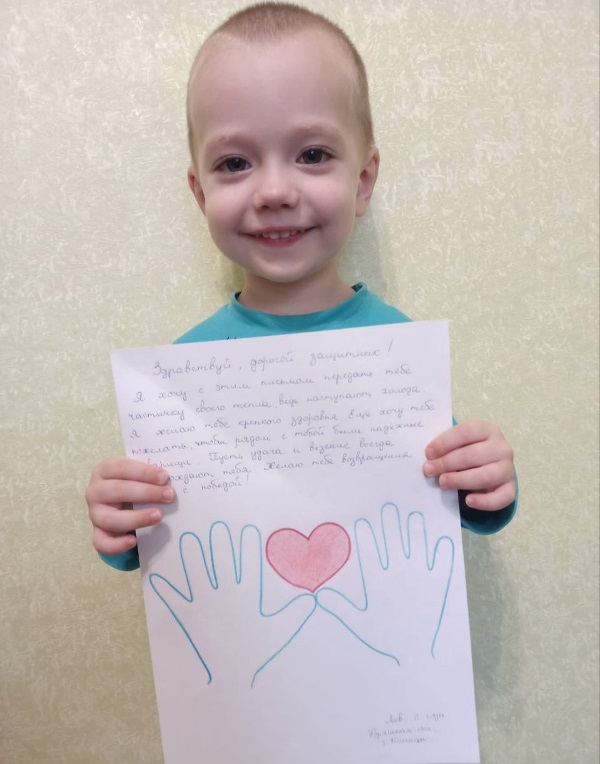 Здравствуй, дорогой защитник!
Я хочу с этим письмом передать тебе
частичку своего тепла, ведь наступают холода.
Я желаю тебе крепкого здоровья. Ещё хочу тебе
пожелать, чтобы рядом с тобой были надёжные
Пусть удача и везение всегда
тебя! Желаю тебе возвращения
с победой!